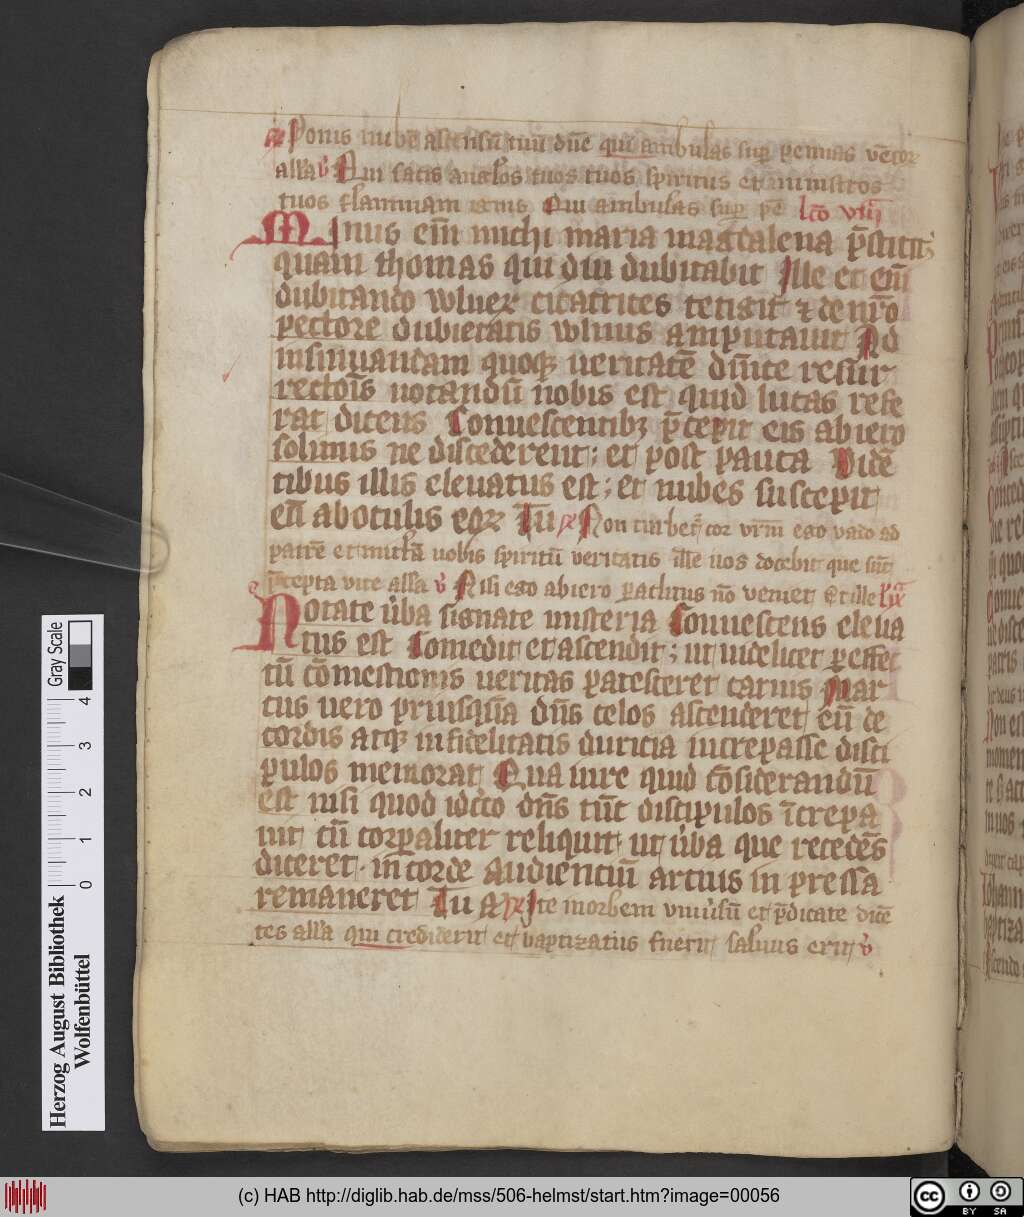 ℞ Ponis nubē ascensū tuū dn̄e qui ambulas sup̱ pennas vētoꝝ
all'a v̓ Qui facis angelos tuos tuos spiritus et ministros
tuos flammam ignis Qui ambulas sup̱ pē lc̄o viii
Minus em̄ michi maria magdalena p̄stitit
quam thomas qui diu dubitabit Ille et em̄
dubitando wlnerꝝ cicatrices tetigit ⁊ de nr̄o
pectore dubietatis wlnus amputauit Ad
insinuandam quoqꝫ ueritatē dn̄ice resur
rectiōis notandū nobis est quid lucas refe
rat dicens Conuescentibꝫ p̄cepit eis ab iero
solimis ne discederent; et post pauca Vidē
tibus illis eleuatus est; et nubes suscepit
eū ab oculis eoꝝ Tu ℞ Non turbet̄ cor vrm̄ ego vado ad
patrē et mittā uobis spiritū veritatis ille uos docebit que sūt
p̄cepta vite all'a v̓ Nisi ego abiero paclitus nō veniet Et ille lc̄ ix
Notate v̓ba signate misteria Conuescens eleua
tus est Comedit et ascendit; ut uidelicet p̱ effec
tū cōmestionis ueritas patesceret carnis Mar
cus uero priusqūā dn̄s celos ascenderet eū de
cordis atqꝫ infidelitatis duricia increpasse disci
pulos memorat Qua in re quid cōsiderandū
est nisi quod idcō dn̄s tūc discipulos īcrepa
uit cū corp̱aliter reliquit ut v̓ba que recedēs
diceret in corde audientiū artius in pressa
remaneret Tu A ℞ Ite in orbem vniu̓sū et p̄dicate dicē
tes all'a qui crediderit et baptizatus fuerit saluus erit v̓
Gray Scale
0 1 2 3 4
Herzog August Bibliothek
Wolfenbüttel
(c) HAB http://diglib.hab.de/mss/506-helmst/start.htm?image=00056
cc BY SA